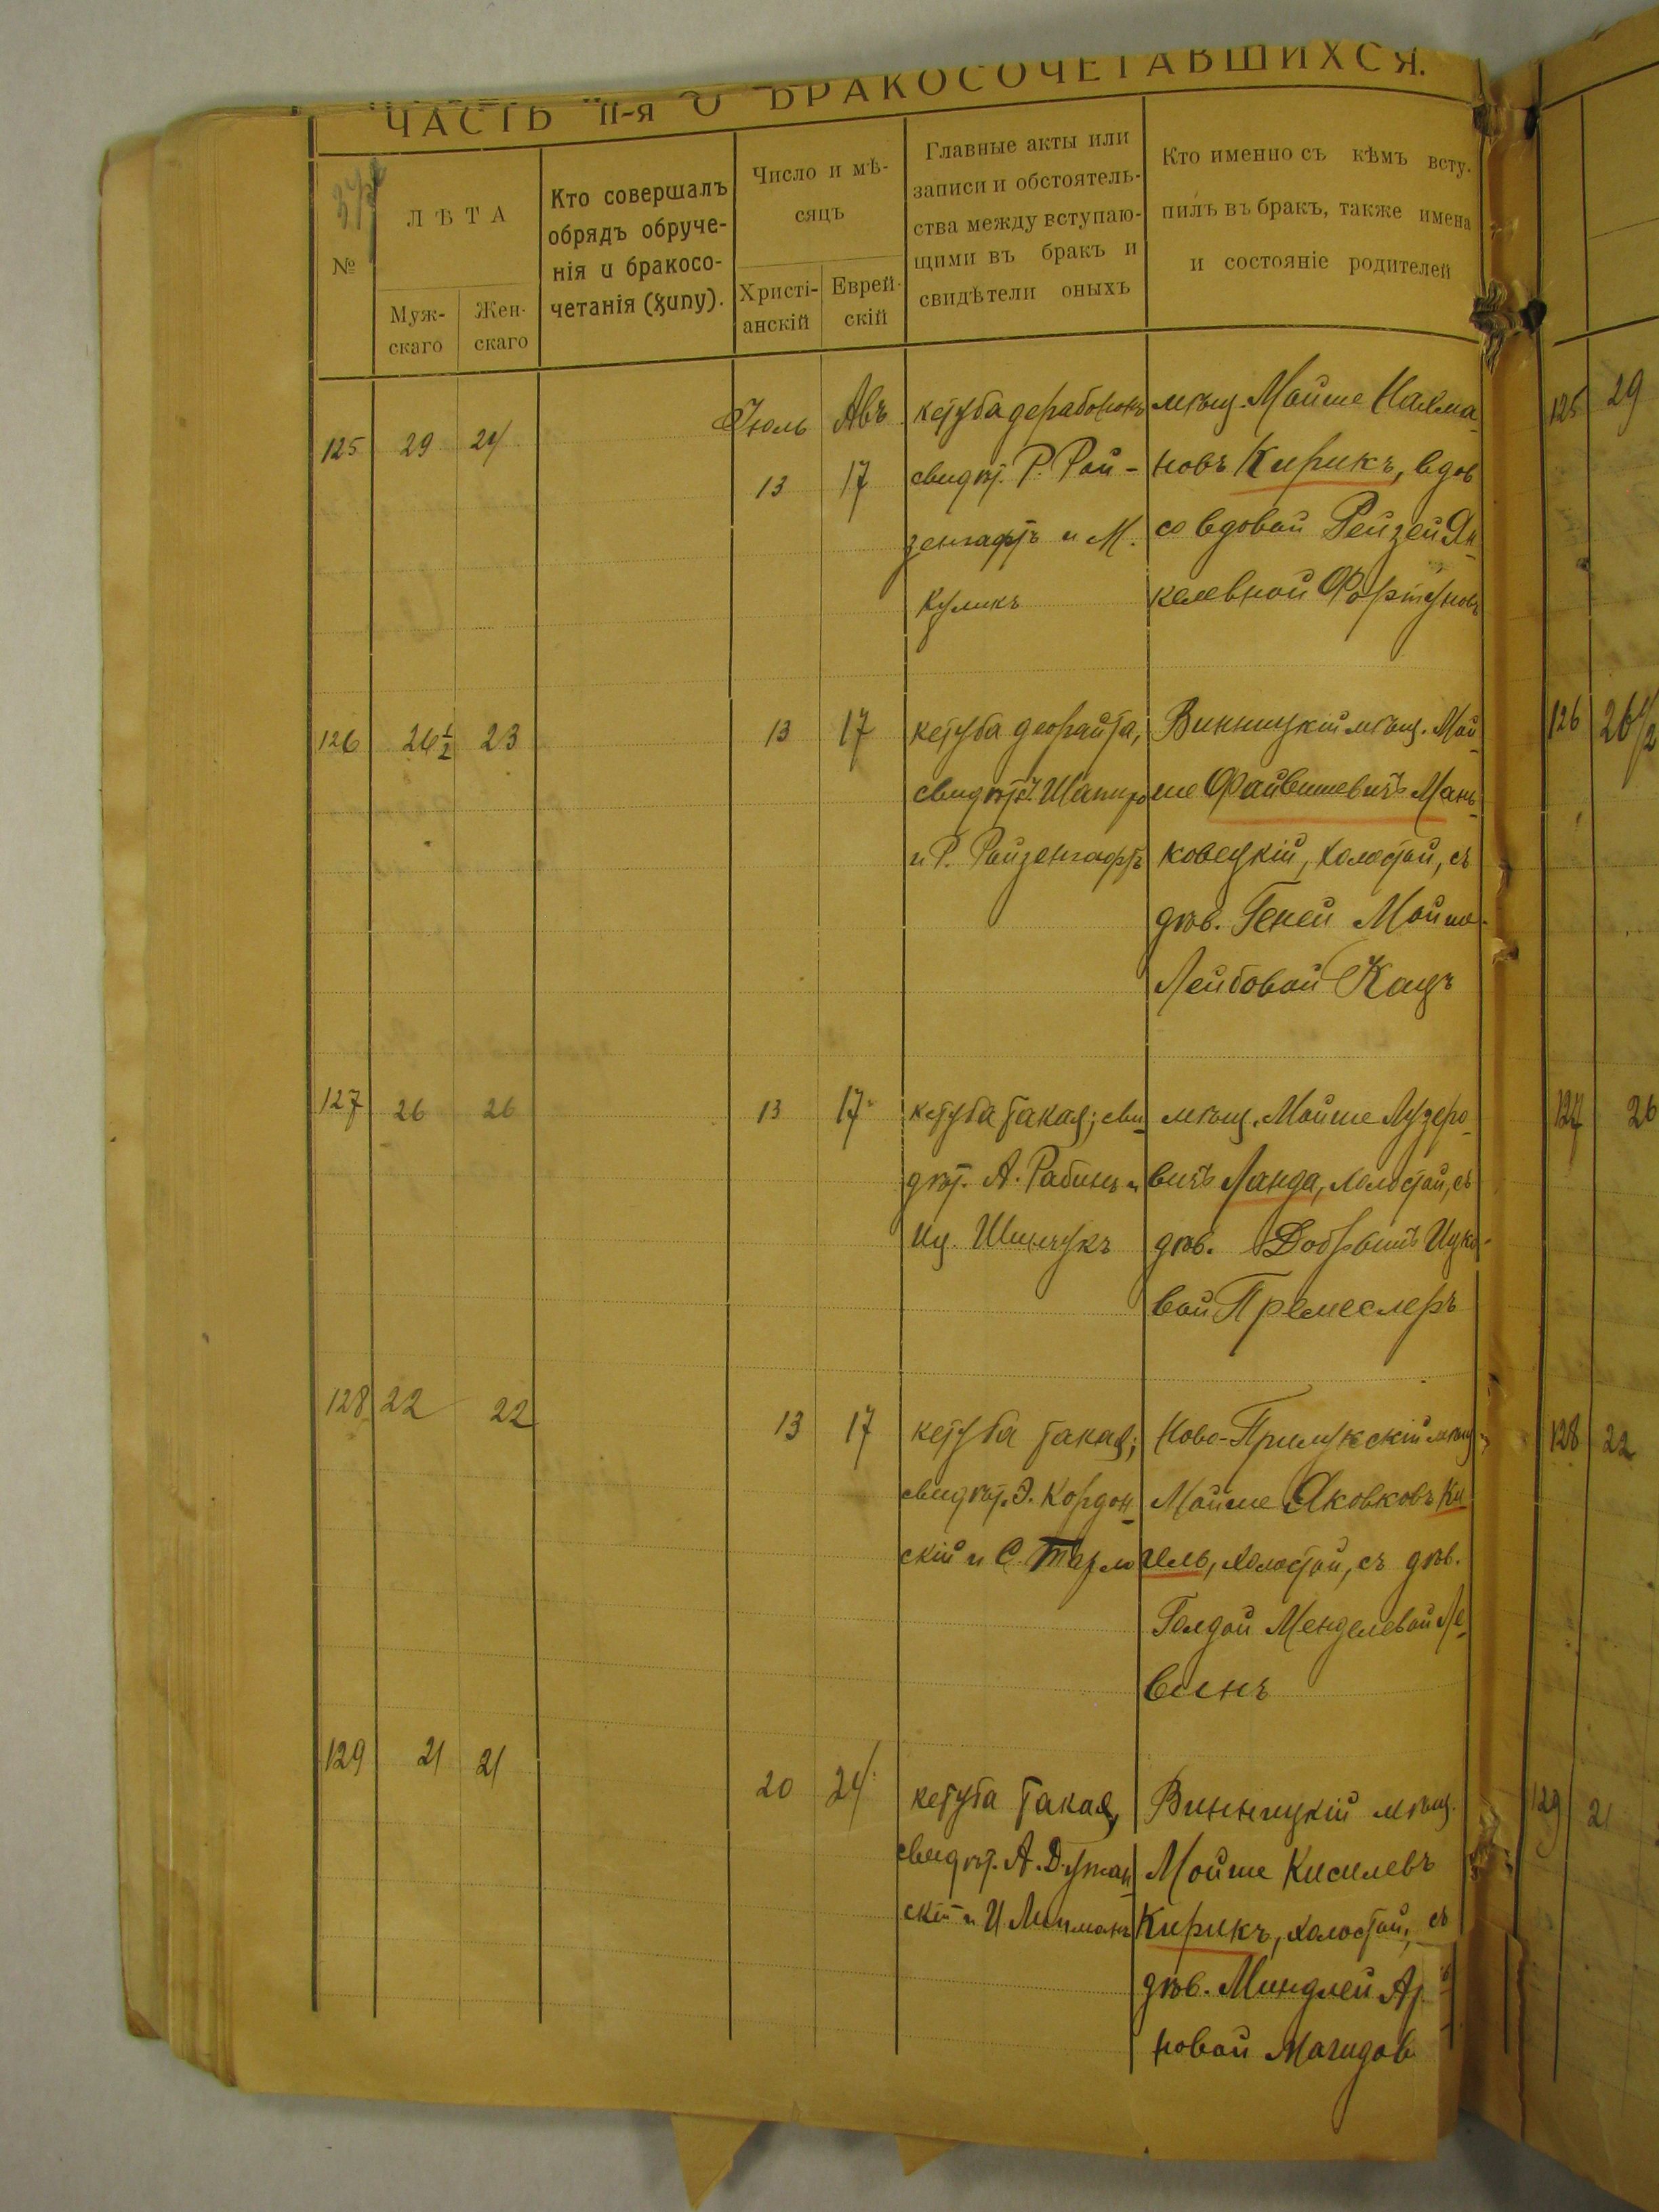 ЧАСТЬ II-я О БРАКОСОЧЕТАВШИХСЯ.
№
ЛѢТА
Муж-
скаго
Жен-
скаго
Кто совершалъ
обрядъ обруче-
нія и бракосо-
четанія (хупу).
Число и мѣ-
сяцъ
Христі-
анскій
Еврей-
скій
Главные акты или
записи и обстоятель-
ства между вступаю-
щими въ бракъ и
свидѣтели оныхъ
Кто именно съ кѣмъ всту-
пилъ въ бракъ, также имена
и состояніе родителей
125 29 24
Іюль Авъ
13 17
кетуба дерабононъ
свидѣт. Р. Рой-
зенгафтъ и М.
Куликъ
мѣщ. Мойше Нахма-
новъ Кирикъ, вдов
со вдовой Рейзей Ян-
келевной Фортуновъ
126 26½ 23
13 17
кетуба деорайта,
свидѣт. Шапиро
и Р. Ройзенгафтъ
Винницкій мѣщ. Мой-
ше Файвишевичъ Мань-
ковецкій, холостой, съ
дѣв. Геней Мойше-
Лейбовой Кацъ
127 26 26
13 17
кетуба такая; сви-
дѣт. А. Рабинъ и
Иц. Шинчукъ
мѣщ. Мойше Лузеро-
вичъ Ланда, холостой, съ
дѣв. Добрышъ Ицко-
вой Премеслеръ
128 22 22
13 17
кетуба такая;
свидѣт. Э. Кордон-
скій и С.
Ново-Прилукскій мѣщ.
Мойше Яковковъ Ки-
гель, холостой, съ дѣв.
Голдой Менделевой Ле-
винъ
129 21 21
20 24
кетуба такая,
свидѣт. А. Думан-
скій и И Липманъ
Винницкій мѣщ.
Мойше Кисилевъ
Кирикъ, холостой, съ
дѣв. Миндлей Ар
новой Магидов
125 29
126 26½
127 26
128 22
129 21